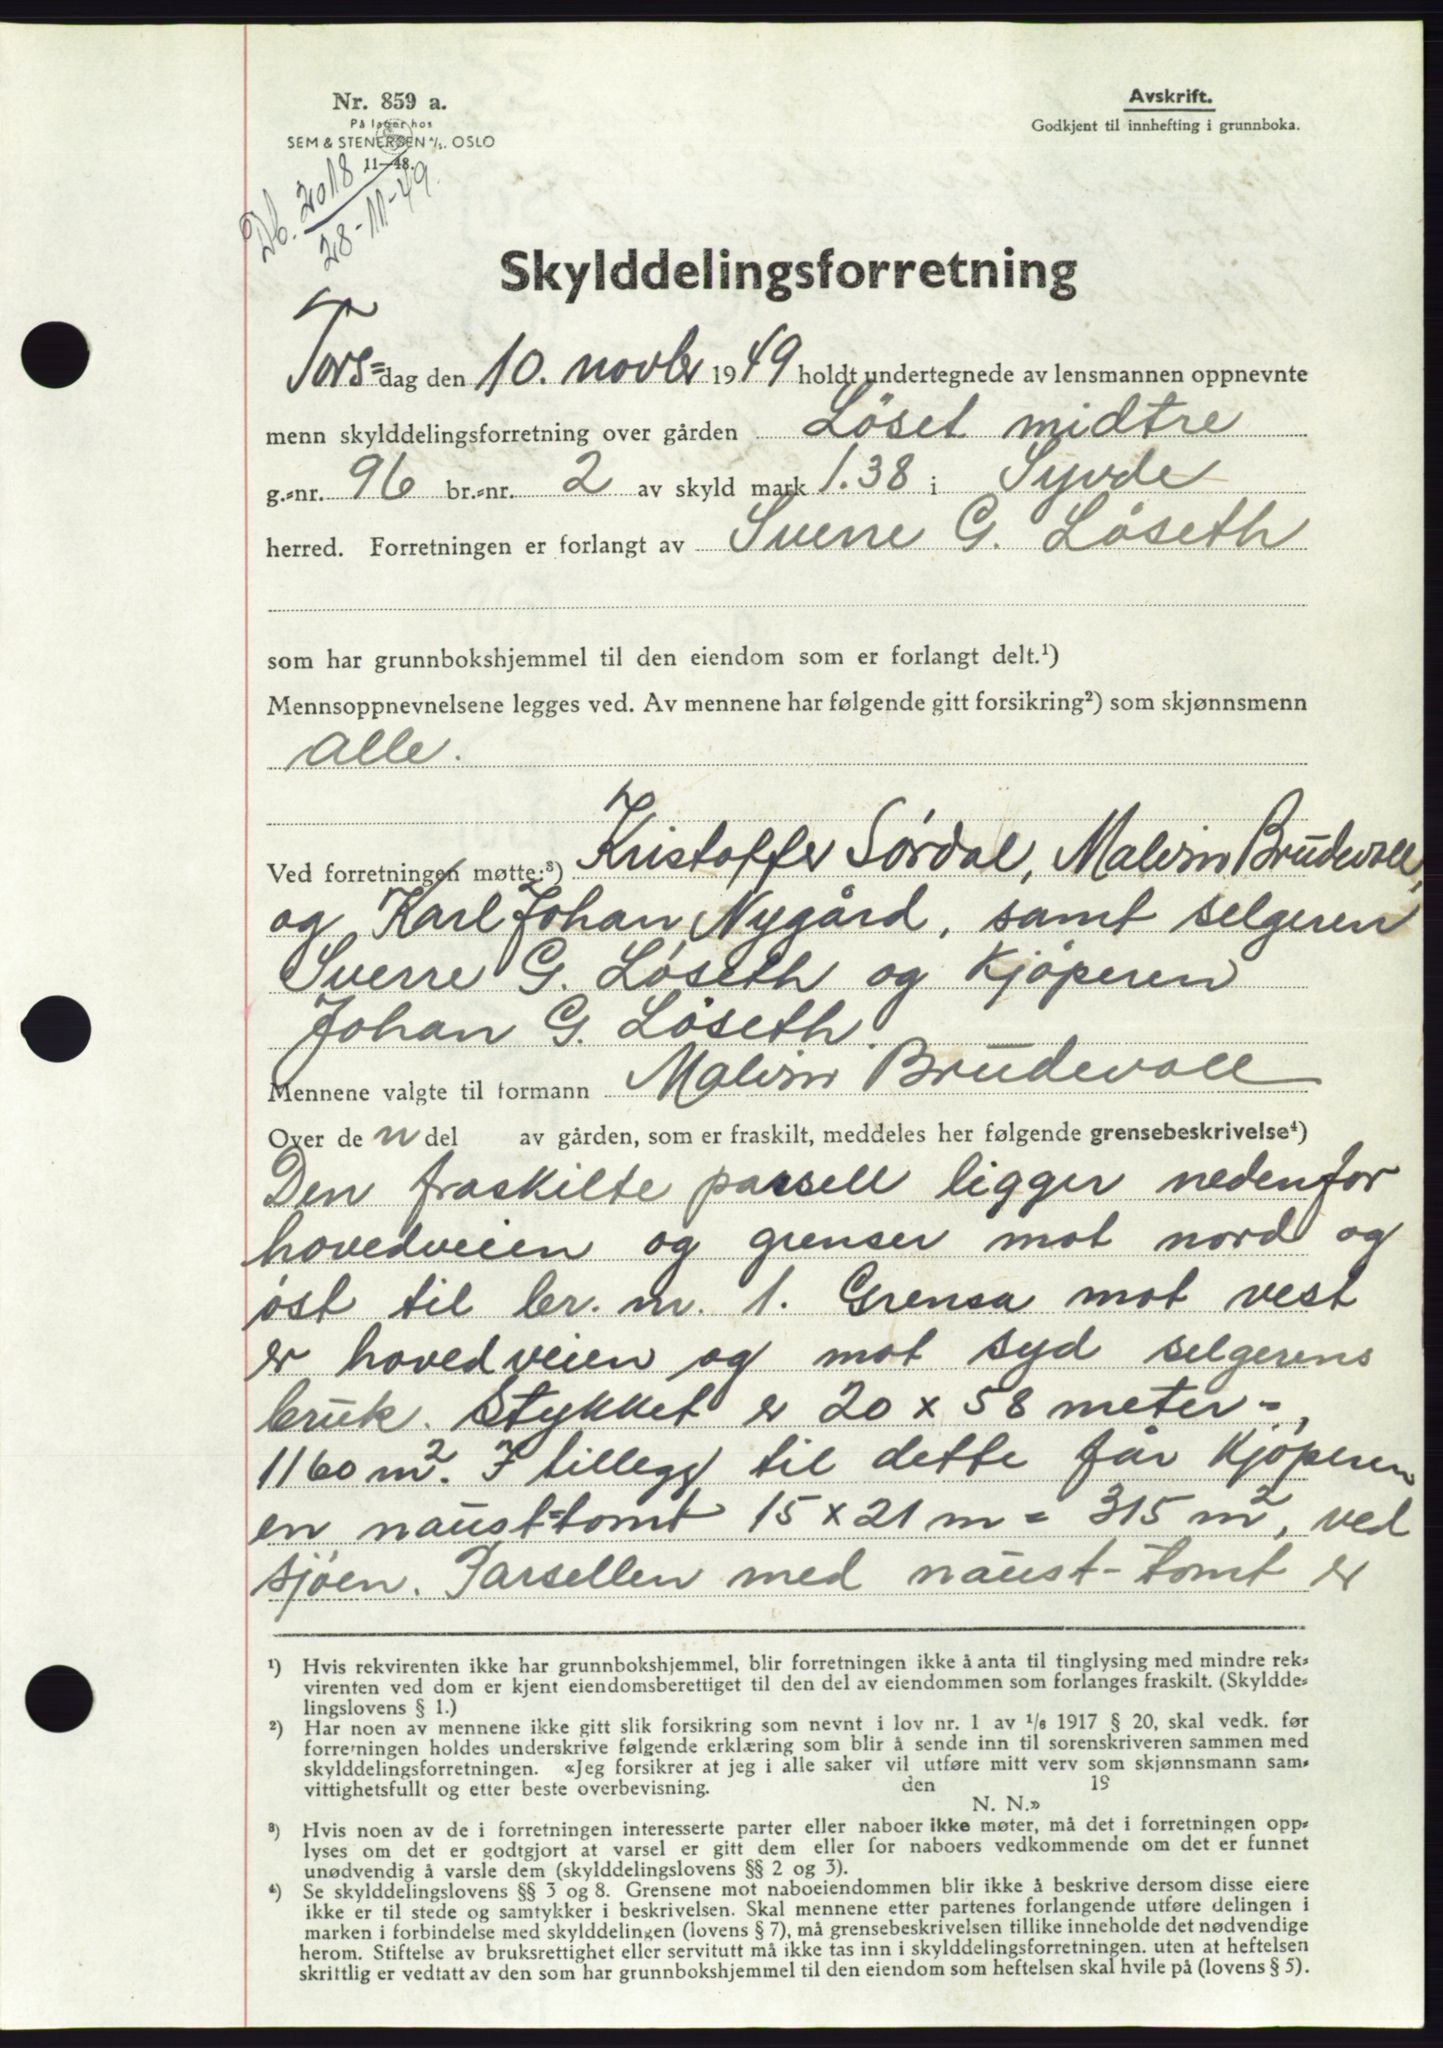 Nr. 859 a.
På lager hos
SEM & STENERSEN A/S. OSLO
11—48.
Avskrift.
Godkjent til innhefting i grunnboka.
Db. 2018
28-11-49
Skylddelingsforretning
Tors=dag den 10. novbr 1949 holdt undertegnede av lensmannen oppnevnte
menn skylddelingsforretning over gården Löset midtre
g.=nr. 96 br.=nr. 2 av skyld mark 1.38 i Syvde
herred. Forretningen er forlangt av Sverre G. Löseth
som har grunnbokshjemmel til den eiendom som er forlangt delt.¹)
Mennsoppnevnelsene legges ved. Av mennene har følgende gitt forsikring²) som skjønnsmenn
alle.
Ved forretningen møtte:³) Kristoffer Sørdal, Malvin Brudevoll,
og Karl Johan Nygård, samt selgeren
Sverre G. Löseth og kjøperen
Johan G. Löseth.
Mennene valgte til formann Malvin Brudevoll
Over de n del av gården, som er fraskilt, meddeles her følgende grensebeskrivelse⁴)
Den fraskilte parsell ligger nedenfor
hovedveien og grenser mot nord og
öst til br. nr. 1. Grensa mot vest
er hovedveien og mot syd selgerens
bruk. Stykket er 20 x 58 meter =,
1160 m². I tillegg til dette får kjøperen
en naust=tomt 15 x 21 m = 315 m², ved
sjøen. Parsellen med naust-tomt er
¹) Hvis rekvirenten ikke har grunnbokshjemmel, blir forretningen ikke å anta til tinglysing med mindre rek=
virenten ved dom er kjent eiendomsberettiget til den del av eiendommen som forlanges fraskilt. (Skyldde=
lingslovens § 1.)
²) Har noen av mennene ikke gitt slik forsikring som nevnt i lov nr. 1 av 1/6 1917 § 20, skal vedk. før
forretningen holdes underskrive følgende erklæring som blir å sende inn til sorenskriveren sammen med
skylddelingsforretningen. «Jeg forsikrer at jeg i alle saker vil utføre mitt verv som skjønnsmann sam=
vittighetsfullt og etter beste overbevisning. den 19
N. N.»
³) Hvis noen av de i forretningen interesserte parter eller naboer ikke møter, må det i forretningen opp=
lyses om det er godtgjort at varsel er gitt dem eller for naboers vedkommende om det er funnet
unødvendig å varsle dem (skylddelingslovens §§ 2 og 3).
⁴) Se skylddelingslovens §§ 3 og 8. Grensene mot naboeiendommen blir ikke å beskrive dersom disse eiere
ikke er til stede og samtykker i beskrivelsen. Skal mennene etter partenes forlangende utføre delingen i
marken i forbindelse med skylddelingen (lovens § 7), må grensebeskrivelsen tillike inneholde det nødvendige
herom. Stiftelse av bruksrettighet eller servitutt må ikke tas inn i skylddelingsforretningen. uten at heftelsen
skriftlig er vedtatt av den som har grunnbokshjemmel til den eiendom som heftelsen skal hvile på (lovens § 5).